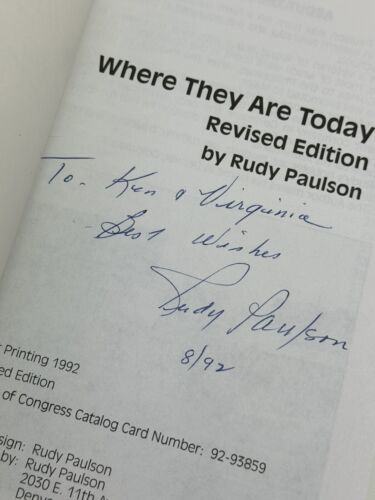 Where They Are Today
Revised Edition
by Rudy Paulson
To - Ken & Virginia
Best Wishes
Rudy Paulson
8/92
Printing 1992
Edition
of Congress Catalog Card Number: 92-93859
Rudy Paulson
by: Rudy Paulson
2030 E. 11th